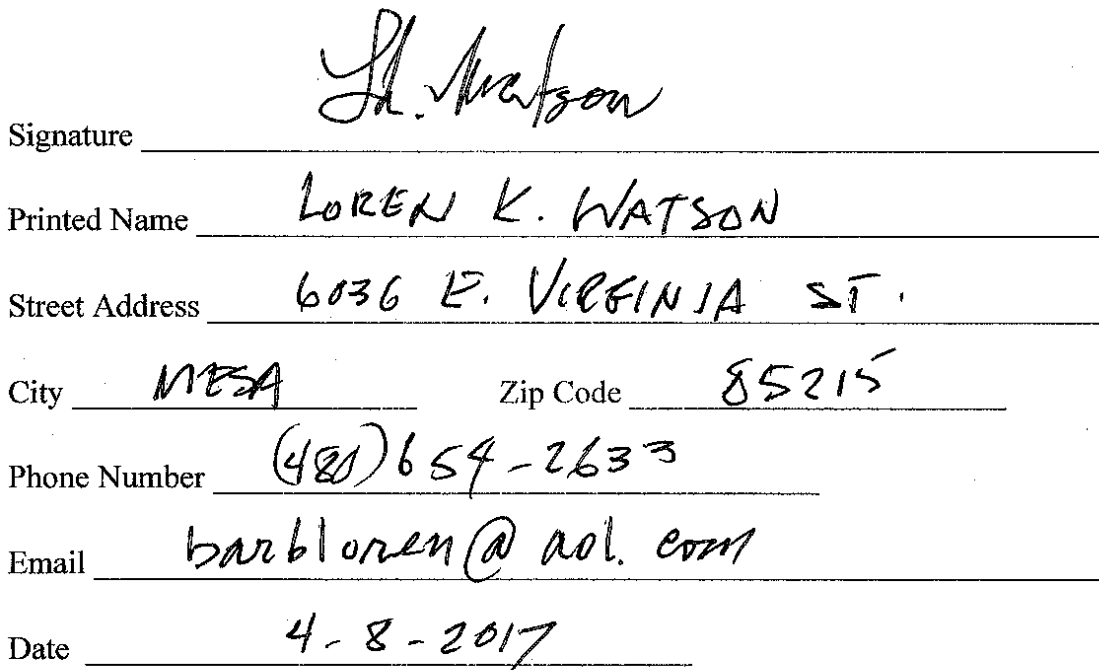 Signature L.K. Watson
Printed Name LOREN K. WATSON
Street Address 6036 E. VIRGINIA ST.
City MESA Zip Code 85215
Phone Number (480) 654-2633
Email barbloren@aol.com
Date 4-8-2017